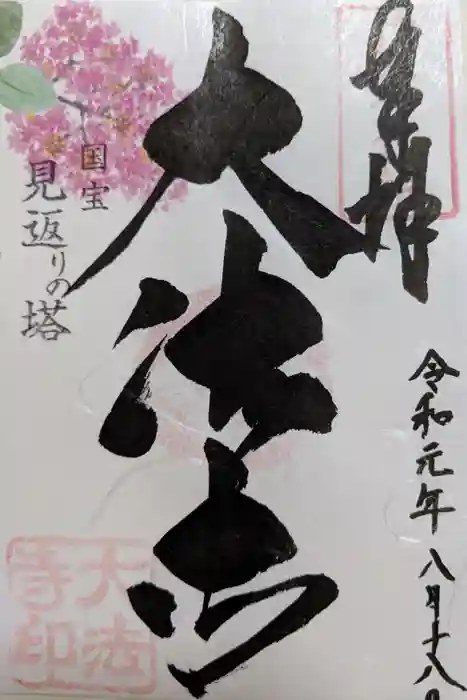 奉拝
令和元年八月十八日
大法寺
国宝
見返りの塔
大法
寺印